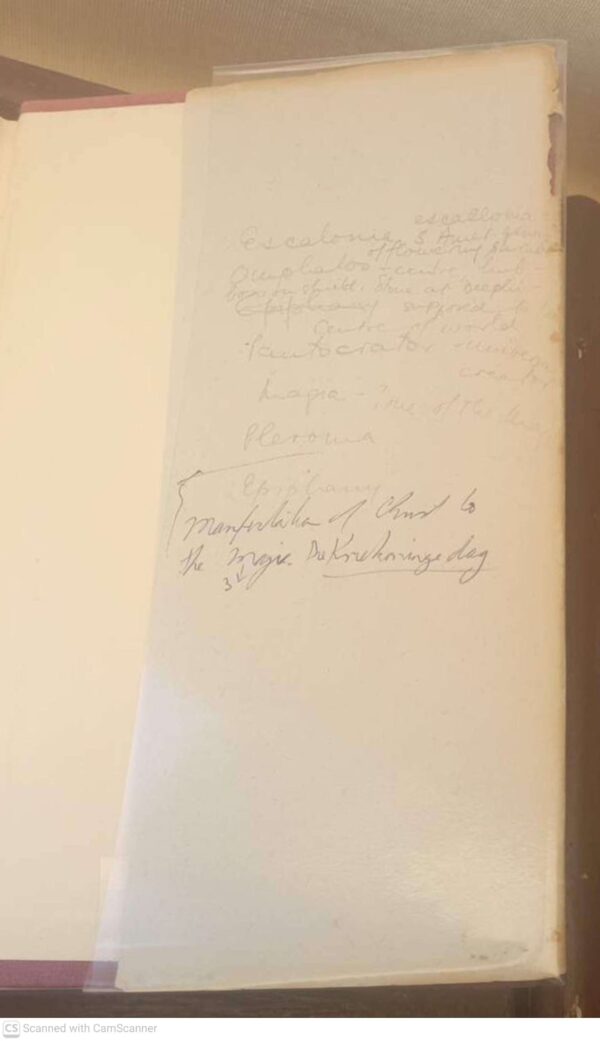 escallonia
Escalonia, S. Amer. genus
of flowering shrubs
Omphalos - centre, hub
boss on shield, stone at Delphi -
Epiphany supposed to
centre of world
Pantocrator - universe
creator
Magia - of the Magi
Pleroma
Epiphany
Manifestation of Christ to
the Magie. Driekoninge dag
3
Scanned with CamScanner